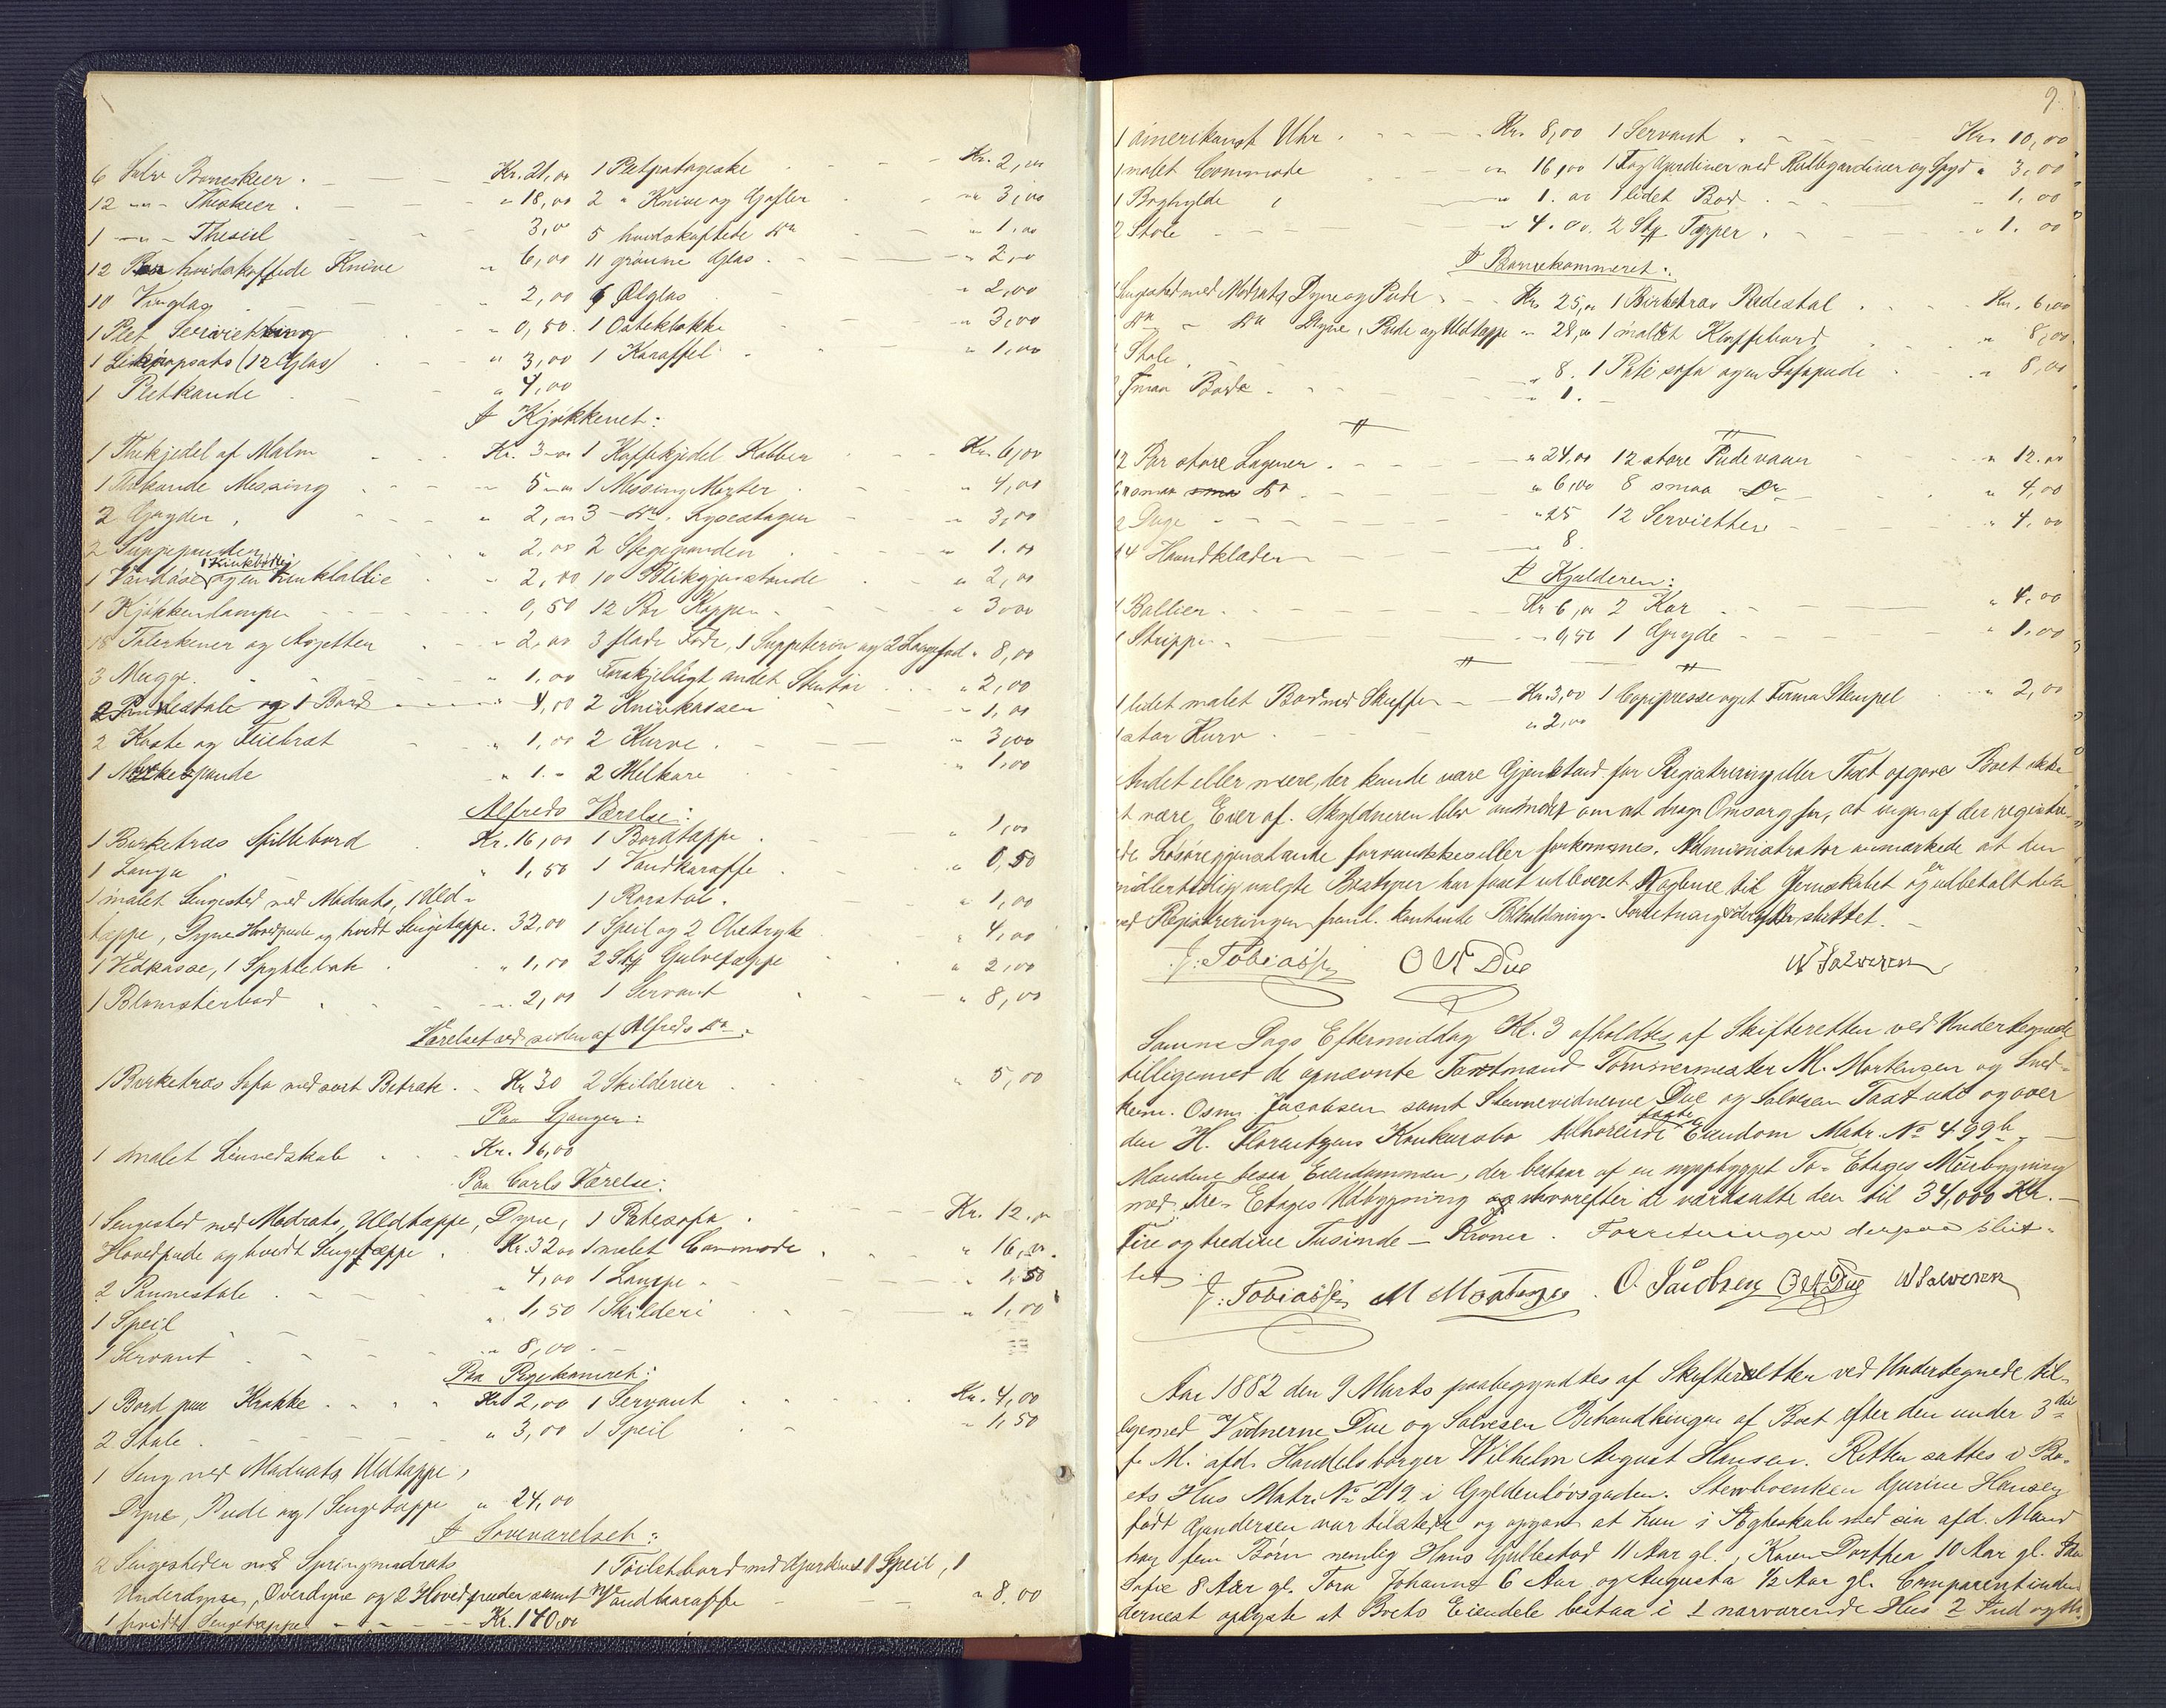 6 Sølv Barneskeer . Kr. 21,00 1 Pletpotageske Kr. 2,00
12 — " — Theskeer . " 18,00 2 " Knive og Gafler " 3,00
1 — " — Thesiel 3,00 5 hvidskaftede Do " 1,00
12 Par hvidskaftede Knive " 6,00 11 grønne Glas . " 2,00
10 Vinglas " 2,00 6 Ølglas " 2,00
1 Plet " 0,50 . 1 Osteklokke " 3,00
1 Likøropsats (12 Glas) " 3,00 1 Karaffel " 1,00
1 Pletkande " 4,00
I Kjøkkenet :
1 Thekjedel af Malm Kr. 3 — 1 Kaffekjedel Kobber Kr. 6,00
1 Thekande Messing 5 — 1 Messing Morter " 4,00
2 Gryder , " 2,00 3 — Do . Lysestager " 3,00
2 Suppepander " 2,00 2 Stegepander " 1.00
1 Vandøse og en " 2,00 10 Blikgjenstande " 2,00
1 Kjøkkenlampe 0,50 12 Par Kopper " 3,00
18 Talerkener og Asjetter " 2,00 3 flade Fade, 1 Suppeterin og 2 " 8,00
3 Mugge . " 1,00 Forskjelligt andet Stentøi " 2,00
2 Pindestole og 1 Bord " 4,00 2 Knivkasser " 1,00
2 Koste og Feiebret " 1,00 2 Kurve . " 3,00
1 " 1. - 2 Melkare " 1,00
Alfreds Værelse :
1 Birketræs Spillebord Kr. 16,00 1 Bordtæppe . " 1,00
1 Lampe " 1,50 1 Vandkaraffe " 0,50
1 malet Sengested med Madrats, 1 Uld- 1 Rørstol . " 1,00
tæppe, Dyne Hovedpude og hvidt Sengetæppe . 32,00 1 Speil og 2 Oljetryk " 4,00
1 Vedkasse, 1 Spyttebak " 1,00 2 Stk Gulvtæppe " 2,00
1 Blomsterbord " 2,00 1 Servant " 8,00
Værelset ved siden af Alfreds Do .
1 Birketræs Sofa med sort Betræk . Kr 30 2 Skilderier " 5,00
Paa Gangen :
1 malet Linnedskab Kr. 16,00
Paa Carls Værelse :
1 Sengested med Madrats, Uldtæppe, Dyne, 1 Putesofa Kr. 12.00
Hovedpude og hvidt Sengetæppe . Kr. 32,00 1 malet Commode " 16,00
2 Pinnestole " 4,00 1 Lampe " 1,50
1 Speil " 1,50 1 Skilderi " 1,00
1 Servant " 8,00
Paa Pigekammeret :
1 Bord paa Krakke Kr 2,00 1 Servant Kr. 4,00
2 Stole . " 3,00 1 Speil " 1,50
1 Seng med Madrats Uldtæppe,
Dyne, Pude og 1 Sengetæppe " 24,00
I Soveværelset :
2 Sengesteder med Springmadrats 1 Toiletbord med Gardiner 1 Speil, 1
Underdyne, Overdyne og 2 Hovedpuder samt Vandkaraffe " 8.00
1 hvidt Sengetæppe Kr. 140,00
9.
1 amerikansk Uhr . Kr. 8,00 1 Servant Kr. 10,00
1 malet Commode " 16,00 1 Fag Gardiner med Rullegardiner og Spyd " 3,00
1 Boghylde " 1. 00 1 lidet Bord " 1,00
2 Stole " 4.00. 2 Stk Tæpper . " 1.00
I Barnekammeret :
Sengested med Madrats, Dyne og Pude Kr. 25,00 1 Birketræs Piedestal Kr. 6,00
Do — Do Dyne, Pude og Uldtæppe " 28,00 1 malet Klaffebord " 8,00
Stole " 8. 1 sofa og en Sofapude " 8,00
smaa Borde " 1. —
12 Par store Lagener . " 24,00 12 store Pudevaar " 12.00
6 smaa Do " 6,00 8 smaa Do " 4,00
2 Duge " 25 12 Servietter " 4.00
14 Haandklæder " 8
I Kjælderen :
Ballier Kr 6,00 2 Kar " 4.00
1 Strippe " 0,50 1 Gryde " 1.00
1 lidet malet Bord med Skuffer Kr. 3,00 1 Copipresse og et Firma Stempel " 2,00
1 stor Kurv " 2,00
Andet eller mere, der kunde være Gjenstand for Registrering eller Taxt opgaves Boet ikke
at være Eier af. Skyldneren blev anmodet om at drage Omsorg for, at ingen af de registre-
de Løsøregjenstande forvanskes eller forkommes. Administrator anmærkede at den
midlertidig valgte Bestyrer har faaet udleveret Nøglene til Jernskabet og udbetalt den
ved Registreringen freml. kontante Beholdning. Forretningen derefter sluttet. —
J. Tobiassen O N Due W Salvesen
Samme Dags Eftermiddag Kl. 3 afholdtes af Skifteretten ved Undertegnede
tilligemed de opnævnte Taxtmænd Tømmermester M. Mortensen og Sned-
kerm. Osm. Jacobsen samt Stevnevidnerne Due og Salvesen Taxt ude og over
den H. Florentzens Konkursbo tilhørende faste Eiendom Matr. No 499b. —
Mændene besaa Eiendommen, der bestaar af en nyopbygget To-Etages Murbygning
med Tre-Etages Udbygning og hvorefter de værdsatte den til 34,000 Kr. —
Fire og tredive Tusinde — Kroner . Forretningen derpaa slut-
tet
J. Tobiassen M Mortensen . O. Jacobsen O N Due W Salvesen
Aar 1882 den 9 Marts paabegyndtes af Skifteretten ved Undertegnede til-
ligemed Vidnerne Due og Salvesen Behandlingen af Boet efter den under 3die
f. M. afd. Handelsborger Wilhelm August Hansen. Retten sattes i Bo-
ets Hus Matr. No 219 i Gyldenløvsgaden. Stervboenken Gurine Hansen
født Gundersen var tilstede og opgav at hun i Ægteskab med sin afd. Mand
har fem Børn nemlig Hans Gullestad 11 Aar gl., Karen Dorthea 10 Aar gl.
Sofie 8 Aar gl. Tora Johanne 6 Aar og Augusta 1/2 Aar gl. Comparentinden
dernest opgav at Boets Eiendele bestaa i 1 nærværende Hus 2